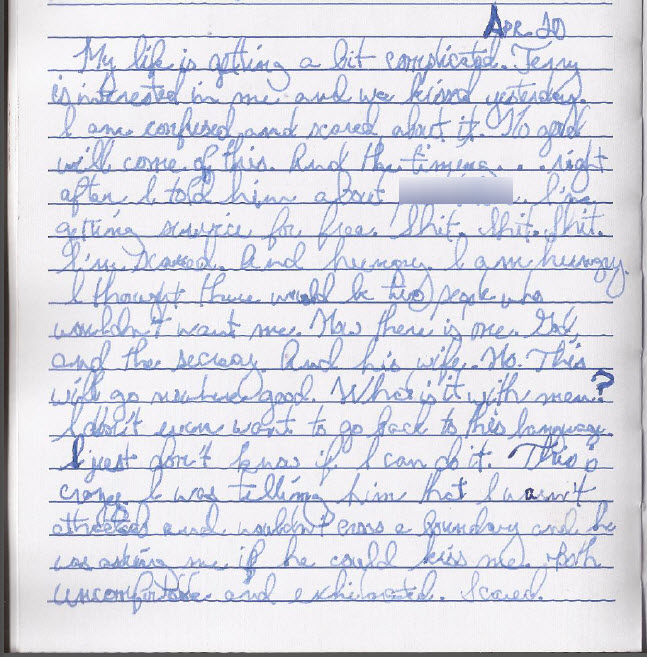 Apr. 20
My life is getting a bit complicated. Terry
is interested in me and we kissed yesterday.
I am confused and scared about it. No good
will come of this. And the timing... right
after I told him about . I'm
getting service for free. Shit. Shit. Shit.
I'm scared. And hungry. I am hungry.
I thought there would be two people who
wouldn't want me. Now there is one. God,
and the secrecy. And his wife. No. This
will go nowhere good. What is it with men?
I don't even want to go back to his
I just don't know if I can do it. This is
crazy. I was telling him that I wasn't
attracted and wouldn't cross a boundary and he
was asking me if he could kiss me. Both
uncomfortable and exhilarated. Scared.